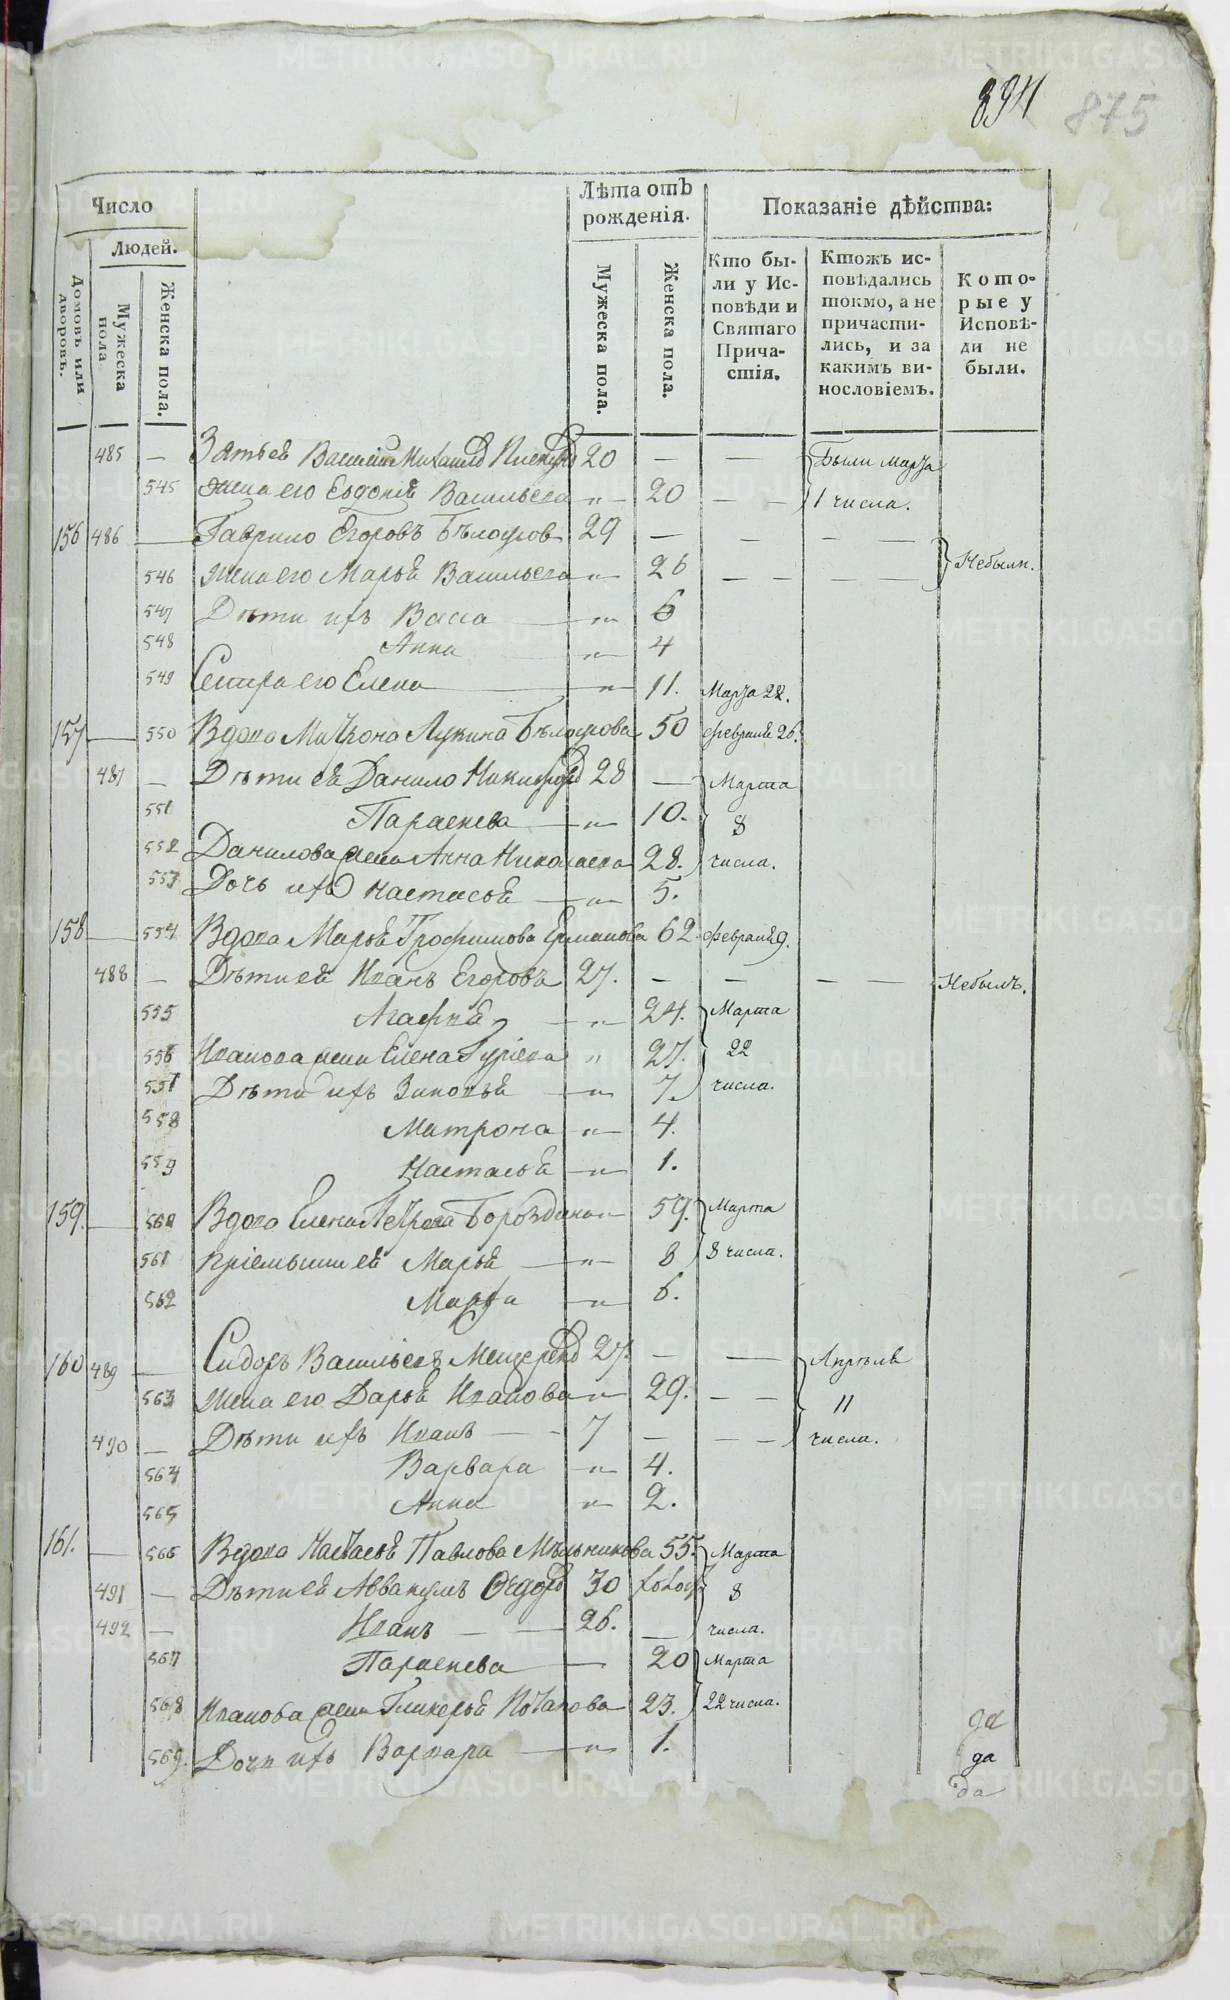 894 875
Число
Людей.
Домовъ или дворовъ.
Мужеска пола
Женска пола.
Лѣта отъ рожденія.
Мужеска пола.
Женска пола.
Показаніе дѣйства:
Кто бы-
ли у Ис-
повѣди и
Святаго
Прича-
стія.
Ктожъ ис-
повѣдались
токмо, а не
причасти-
лись, и за
какимъ ви-
нословіемъ.
Кото-
рые у
Исповѣ-
ди не
были.
485 — Зять ея Василій Михайловъ 20 — — Были Марта
545 Жена его Евдокія Васильева " 20 — — 1 числа.
156 486 — Гаврило Егоровъ 29 — — — —
546 Жена его Марья Васильева " 26 — — — — Небыли.
547 Дѣти ихъ Васса — " 6
548 Анна — " 4
549 Сестра его Елена — " 11. Марта 22.
157 — 550 Вдова Матрона Лукина 50 февраля 26.
487 — Дѣти ея Данило Никифоровъ 28 — Марта
551 Параскева — " 10. 8
552 Данилова жена Анна Николаева 28. числа.
553 Дочь ихъ Настасья — " 5.
158 — 554 Вдова Марья Трофимова Ермакова 62. февраля 9.
488 — Дѣти ея Иванъ Егоровъ 27. — — — — Небылъ.
555 Агафья — " 24. Марта
556 Иванова жена Елена Гуріева " 27. 22
557 Дѣти ихъ Зиновья — " 7. числа.
558 Матрона — " 4.
559 Настасья — " 1.
159. — 560 Вдова Елена Петрова Бороздина — 59. Марта
561 Пріемыши ея Марья — " 8 8 числа.
562 Марфа — " 6.
160 489 — Сидоръ Васильевъ 27. — — Апрѣля
563 Жена его Дарья Иванова " 29. — — 11
490 — Дѣти ихъ Иванъ — 7 — — — числа.
564 Варвара — " 4.
565 Анна " 2.
161. — 566 Вдова Настасья Павлова Мѣльникова 55. Марта
491 — Дѣти ея Аввакумъ Ѳедоровъ 30 холос 8
492 — Иванъ — — 26. — числа.
567 Параскева — 20 Марта
568 Иванова жена Гликерья Потапова 23. 22 числа.
569. Дочь ихъ Варвара — " 1.
да
да
да
METRIKI.GASO-URAL.RU